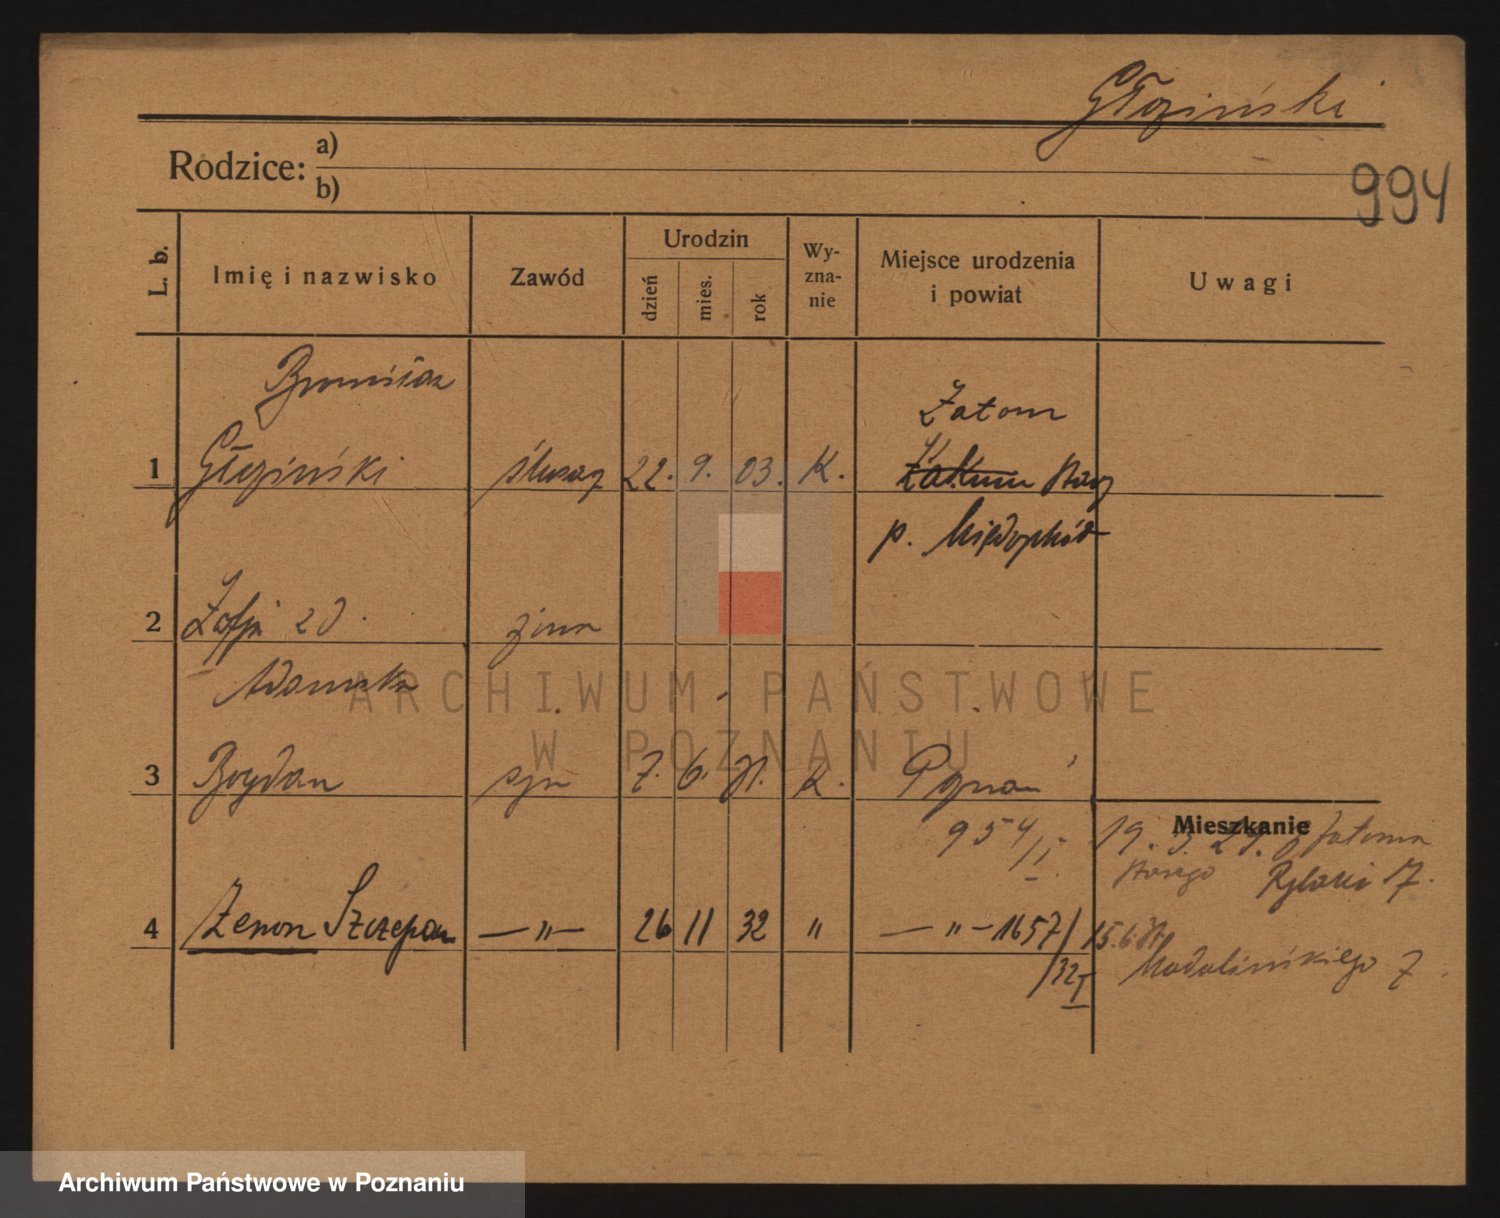 Głoziński
994
Rodzice: a)
b)
L. b.
Imię i nazwisko
Zawód
Urodzin
dzień
mies.
rok
Wy-
zna-
nie
Miejsce urodzenia
i powiat
Uwagi
Bronisław
Zatom
1 Głoziński 22. 9. 03. K. Stary
p. Międzychód
2 Zofja zd. żona
Adamska
3 Bogdan syn 7. 6. 31. K. Poznań
954/I
Mieszkanie
19. 3. 29. z Zatomia
Starego Rybaki 17.
4 Zenon Szczepan —"— 26 11 32 " —"— 1657/
/32 I
15.6.
Madalińskiego 7
ARCHIWUM PAŃSTWOWE
W POZNANIU
Archiwum Państwowe w Poznaniu